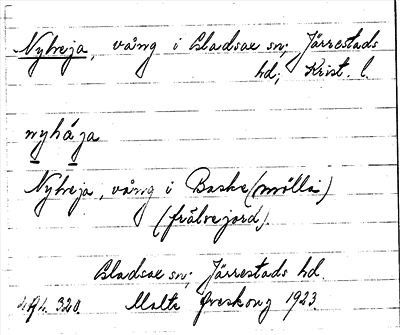 Nyheja, vång i Bladsae sn; Järrestads
hd; Krist. l.
nyhája
Nyheja, vång i Baske (mölla)
(frälsejord).
Bladsae sn; Järrestads hd.
320. Malte Areskoug 1923.